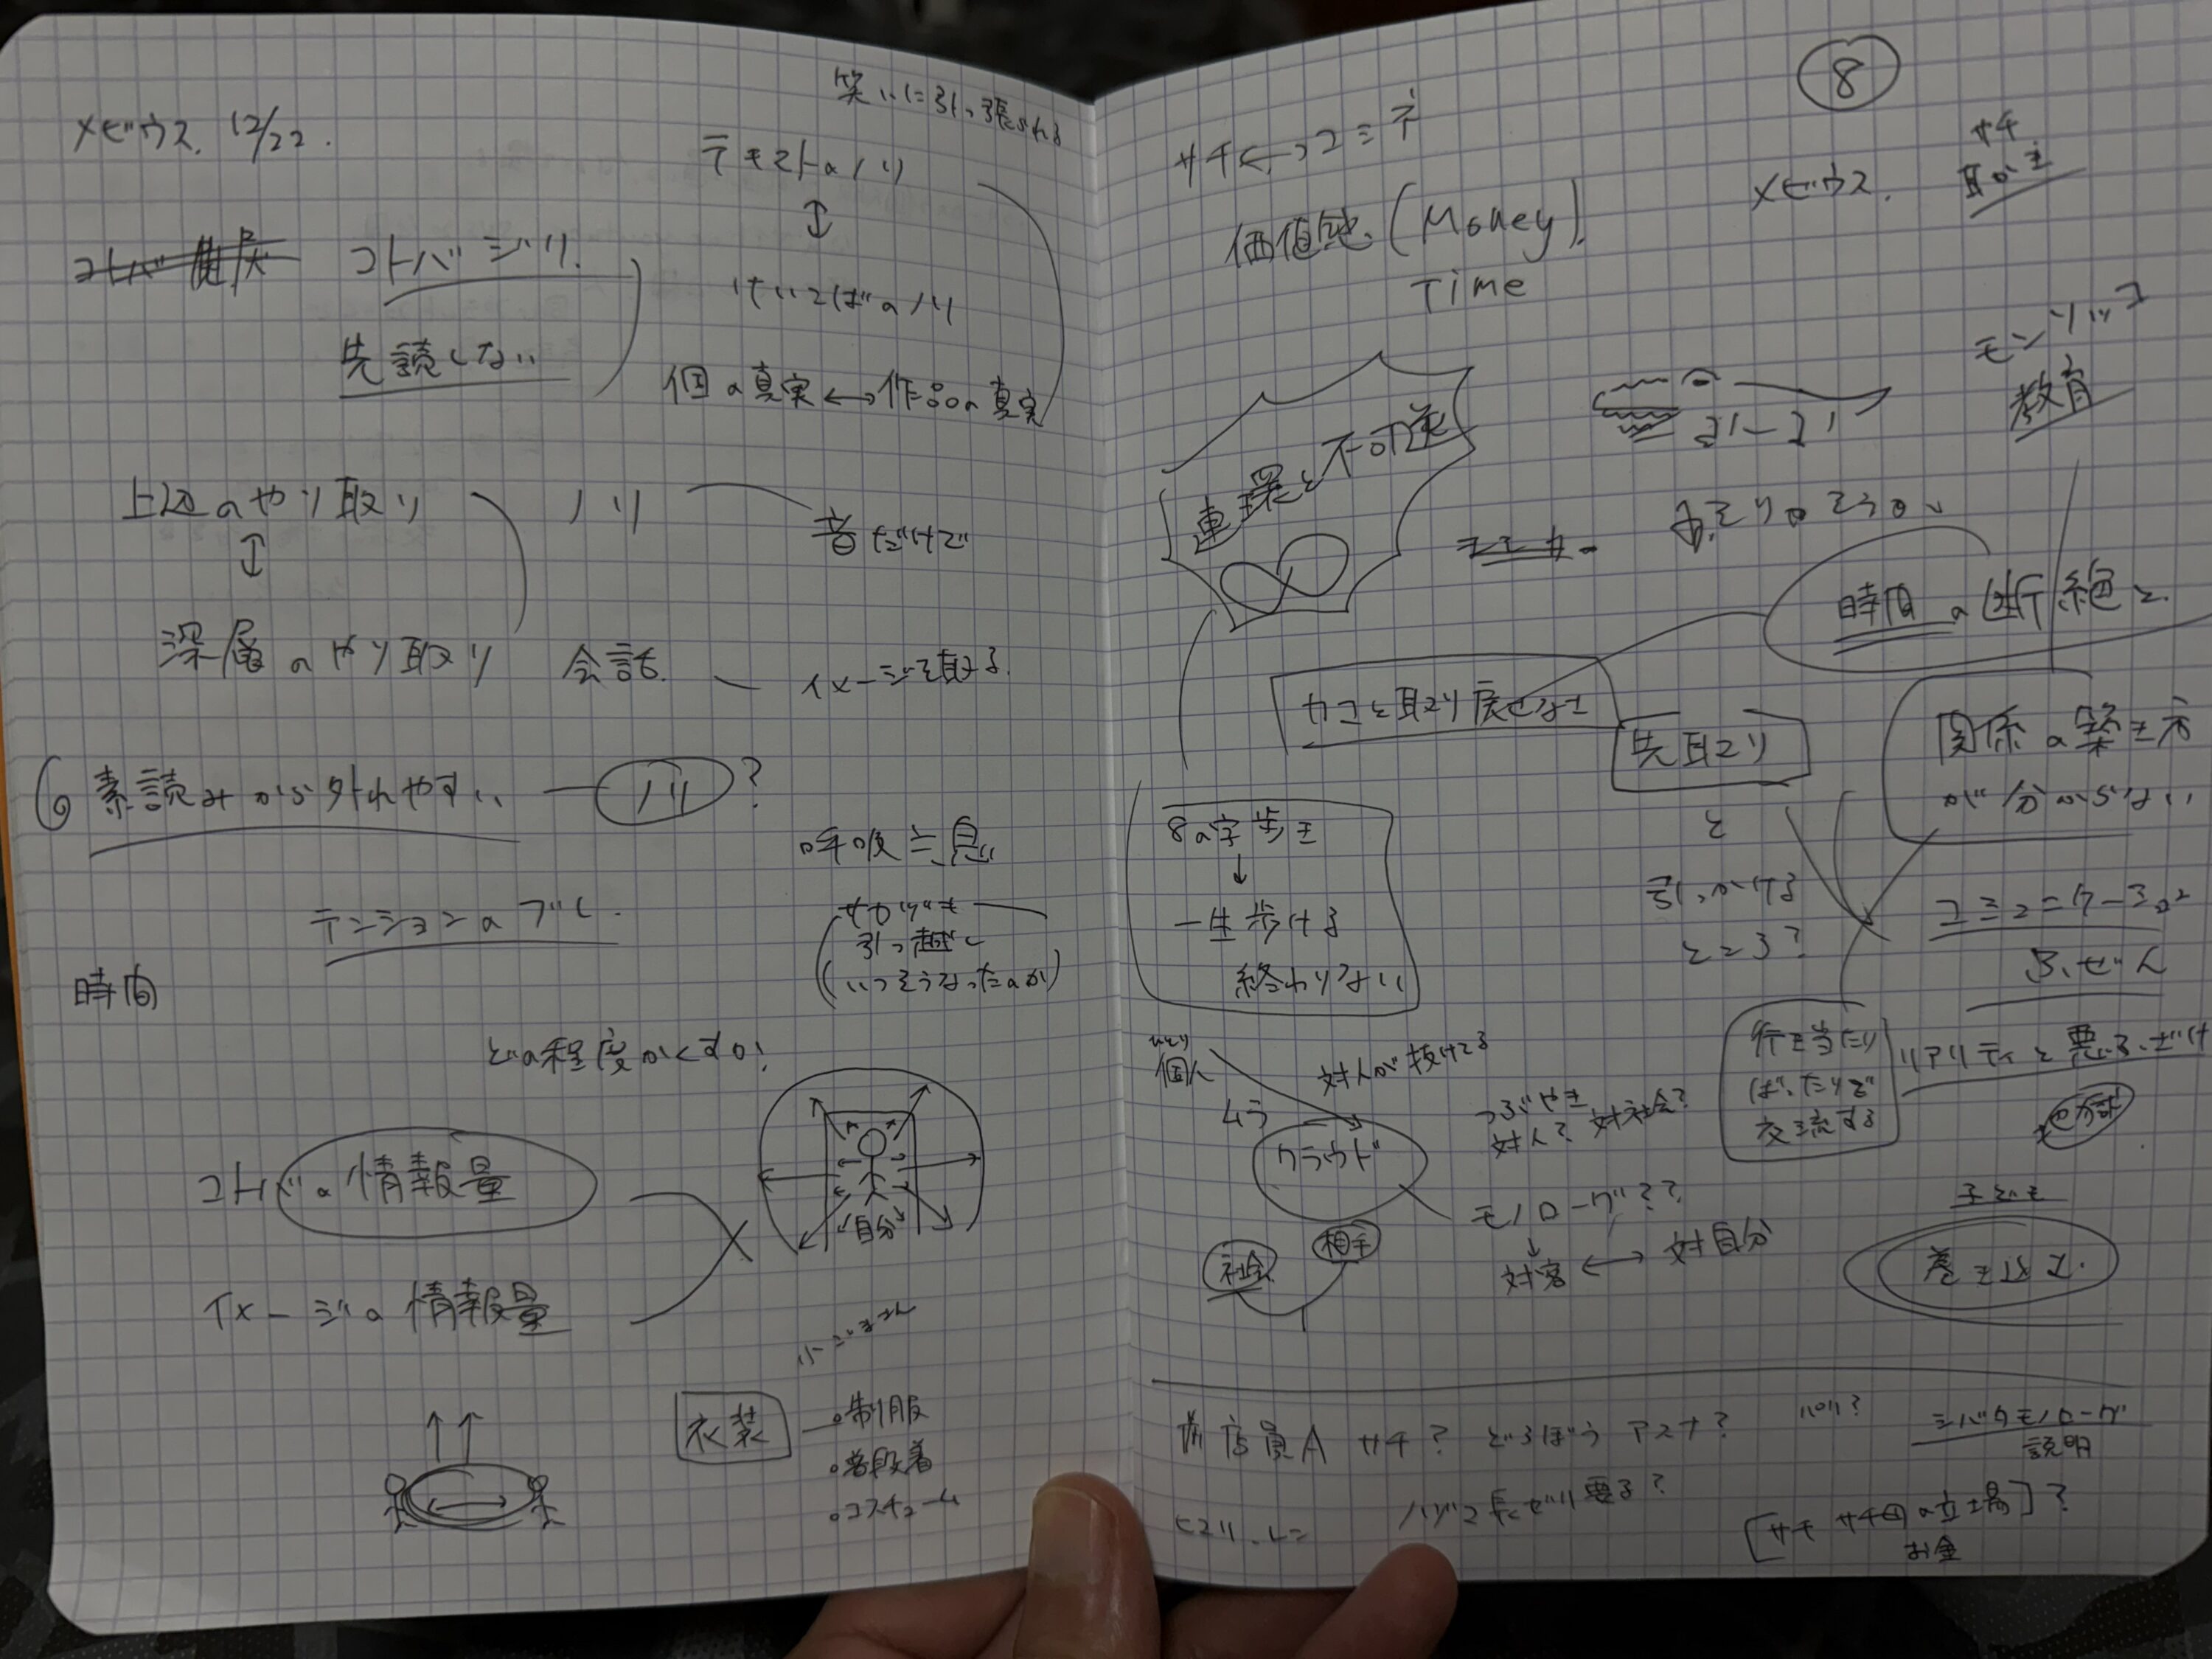 メビウス. 12/22.
笑いに引っ張られる
テキストのノリ
↕
けいこばのノリ
コトバジリ.
先読しない
個の真実 ↔ 作品の真実
上辺のやり取り
↕
深層のやり取り
ノリ
音だけで
会話.
イメージを取る.
素読みから外れやすい ー ノリ?
テンションのブレ.
呼吸≒息
引っ越し
いつそうなったのか
時間
どの程度かくすか!
コトバの情報量
イメージの情報量
自分
衣装
制服
普段着
コスチューム
8
サチ
メビウス.
価値観 (Money).
Time
教育
連環と不可逆
時間の断絶と.
カコを取り戻せない
先取り
と
引っかける
ところ?
関係の築き方
が分からない
8の字歩き
↓
一生歩ける
終わりない
行き当たり
ばったりで
交流する
リアリティと悪ふざけ
ひとり
個人
対人が抜けてる
ムラ
クラウド
つぶやき
対人? 対社会?
モノローグ??
↓
対客 ↔ 対自分
社会
相手
子ども
巻き込む.
店員A サチ? どろぼう アスナ?
シバタモノローグ
説明
サチ サチ母の立場]?
お金